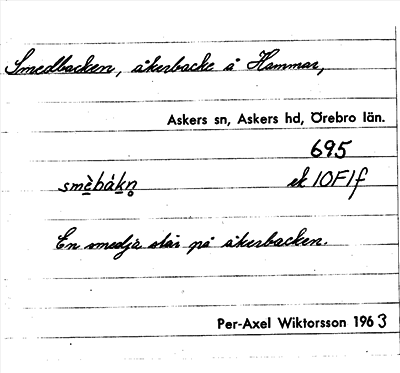 Smedbacken, åkerbacke å Hammar,
Askers sn, Askers hd, Örebro län.
695
smèbákn̥ ek 10F1f
En smedja står på åkerbacken.
Per-Axel Wiktorsson 1963